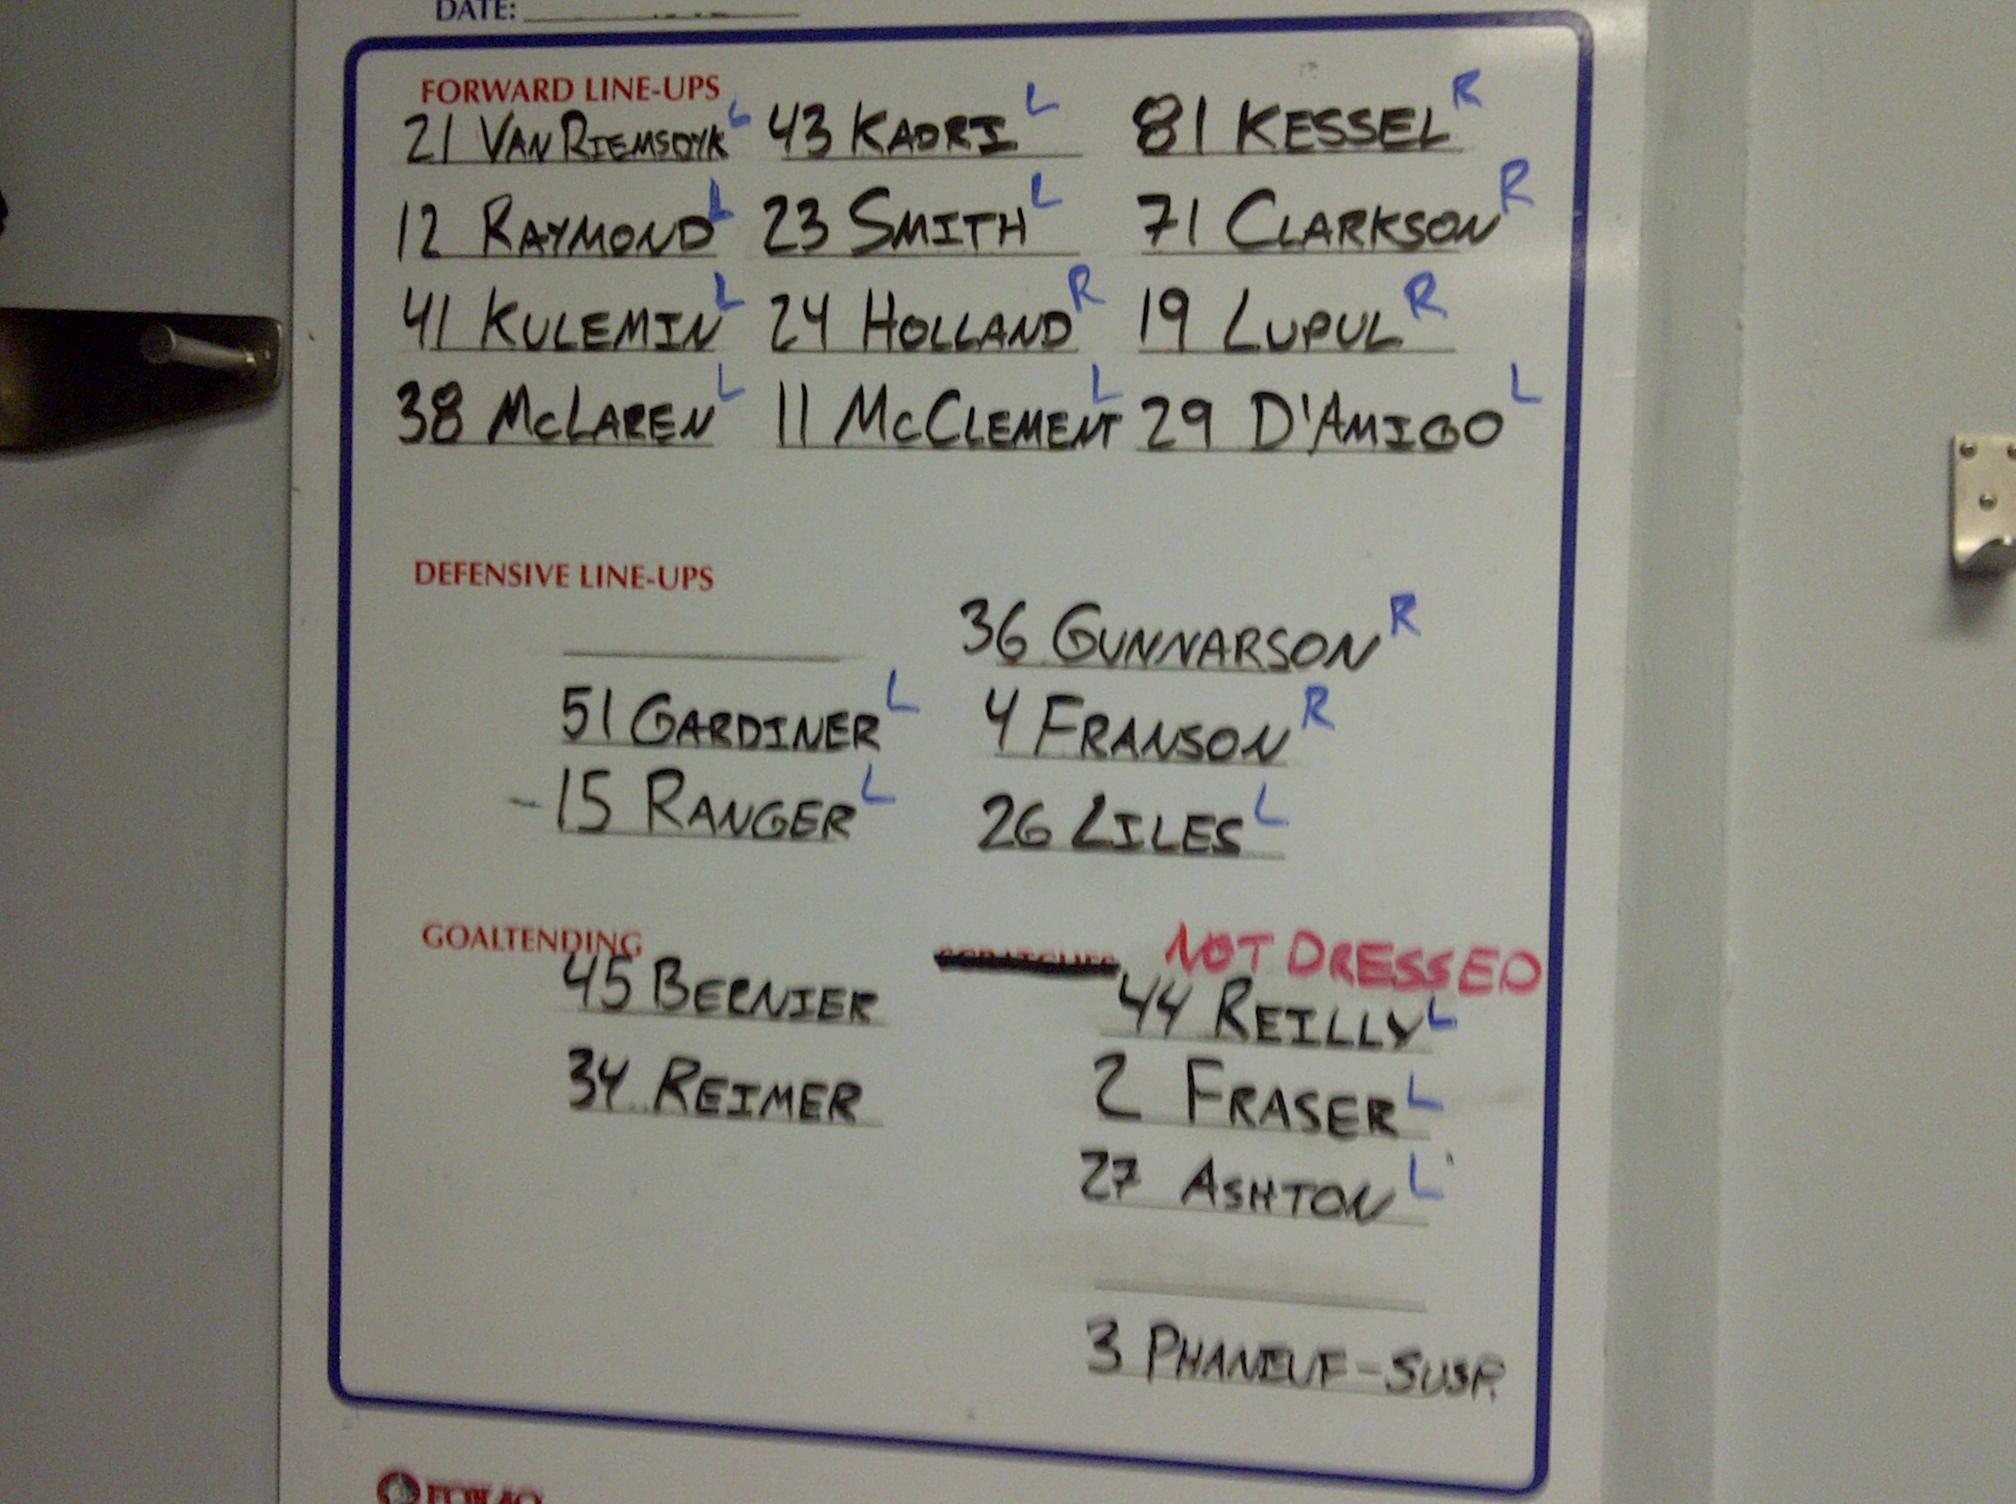 DATE:
FORWARD LINE-UPS
21 VAN RIEMSDYK L 43 KADRI L 81 KESSEL R
12 RAYMOND L 23 SMITH L 71 CLARKSON R
41 KULEMIN L 24 HOLLAND R 19 LUPUL R
38 MCLAREN L 11 MCCLEMENT L 29 D'AMIGO L
DEFENSIVE LINE-UPS
36 GUNNARSON R
51 GARDINER L 4 FRANSON R
-15 RANGER L 26 LILES L
GOALTENDING
45 BERNIER
34 REIMER
SCRATCHES NOT DRESSED
44 REILLY L
2 FRASER L
27 ASHTON L
3 PHANEUF-SUSP.